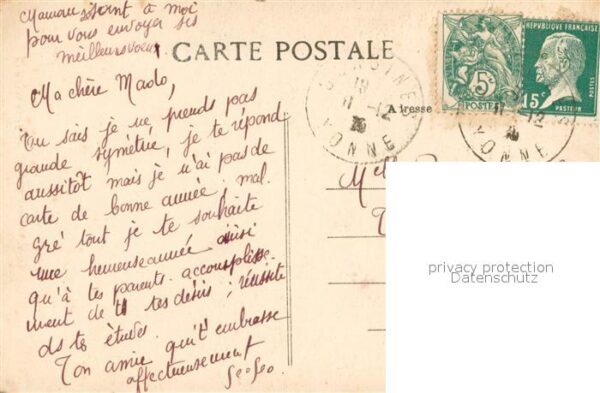 Maman se joint à moi
pour vous envoyer ses
meilleurs voeux.
CARTE POSTALE
RÉPUBLIQUE FRANÇAISE
5c
POSTES
15c
POSTES
PASTEUR
Adresse
YONNE
YONNE
Ma chère Mado,
Tu sais je ne prends pas
grande symétrie, je te répond
aussitôt mais je n'ai pas de
carte de bonne année. mal-
gré tout je te souhaite
une heureuse année ainsi
qu'à tes parents. accomplisse-
ment de ts tes désirs ; réussite
ds ts études.
Ton amie qui t'embrasse
affectueusement
Geo
Mell
privacy protection
Datenschutz